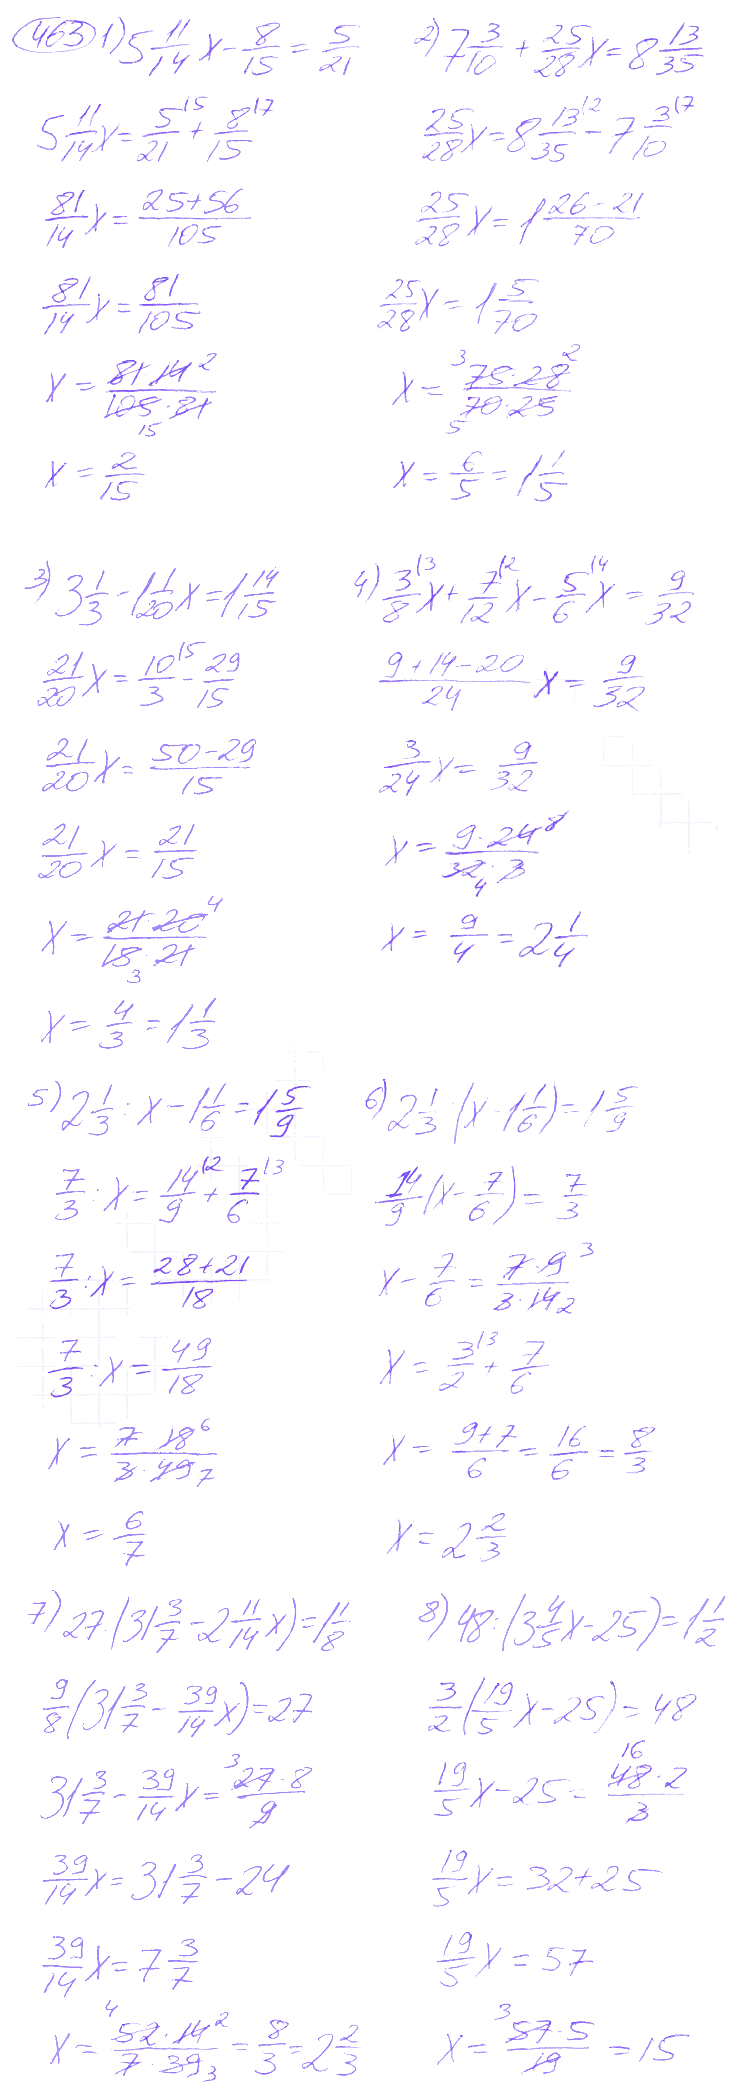 463 1) 5 11/14 x - 8/15 = 5/21
5 11/14 x = 5/21 \5 + 8/15 \7
81/14 x = (25+56)/105
81/14 x = 81/105
x = (81·14 2)/(105·81) 15
x = 2/15
2) 7 3/10 + 25/28 x = 8 13/35
25/28 x = 8 13/35 \2 - 7 3/10 \7
25/28 x = 1 (26-21)/70
25/28 x = 1 5/70
x = 3 (75·28 2)/(70·25) 5
x = 6/5 = 1 1/5
3) 3 1/3 - 1 1/20 x = 1 14/15
21/20 x = 10/3 \5 - 29/15
21/20 x = (50-29)/15
21/20 x = 21/15
x = (21·20 4)/(15 3·21)
x = 4/3 = 1 1/3
4) 3/8 \3 x + 7/12 \2 x - 5/6 \4 x = 9/32
(9+14-20)/24 x = 9/32
3/24 x = 9/32
x = (9·24 8)/(32·3) 4
x = 9/4 = 2 1/4
5) 2 1/3 : x - 1 1/6 = 1 5/9
7/3 : x = 14/9 \2 + 7/6 \3
7/3 : x = (28+21)/18
7/3 : x = 49/18
x = (7·18 6)/(3·49 7)
x = 6/7
6) 2 1/3 : (x - 1 1/6) = 1 5/9
14/9 (x - 7/6) = 7/3
x - 7/6 = (7·9 3)/(3·14 2)
x = 3/2 \3 + 7/6
x = (9+7)/6 = 16/6 = 8/3
x = 2 2/3
7) 27 : (31 3/7 - 2 11/14 x) = 1 1/8
9/8 (31 3/7 - 39/14 x) = 27
31 3/7 - 39/14 x = (3 27·8)/9
39/14 x = 31 3/7 - 24
39/14 x = 7 3/7
x = (4 52·14 2)/(7·39 3) = 8/3 = 2 2/3
8) 48 : (3 4/5 x - 25) = 1 1/2
3/2 (19/5 x - 25) = 48
19/5 x - 25 = (16 48·2)/3
19/5 x = 32+25
19/5 x = 57
x = (3 57·5)/19 = 15